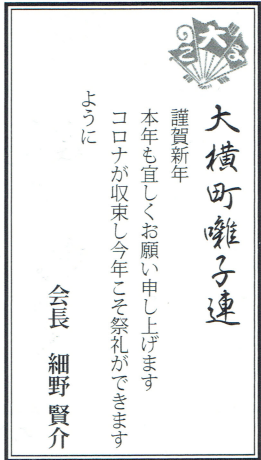 大
よ
こ
大横町囃子連
謹賀新年
本年も宜しくお願い申し上げます
コロナが収束し今年こそ祭礼ができます
ように
会長　細野賢介